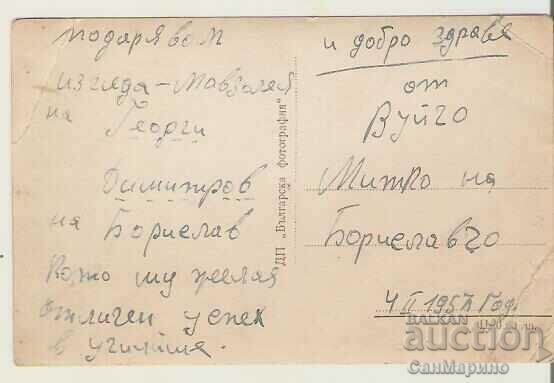 подарявам
изгледа - Мавзолея
на Георги
Димитров
на Борислав
като му желая
отличен успех
в училище.
ДП „Българска фотография“
и добро здраве
от
Вуйчо
Митко на
Бориславчо
4 II 1957 год.
BALKAN
auction
СанМарино